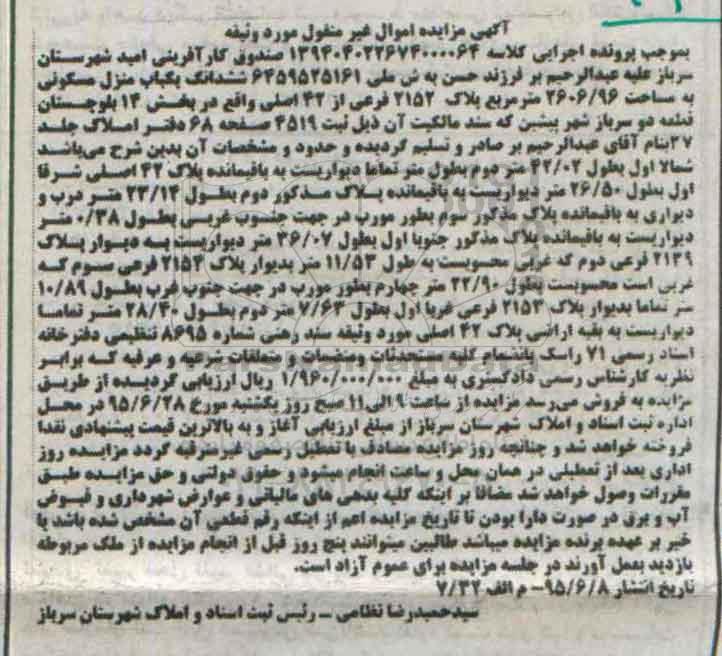 آگهی مزایده اموال غیر منقول مورد وثیقه
بموجب پرونده اجرایی کلاسه ۱۳۹۴۰۴۰۲۲۶۷۴۰۰۰۰۶۴ صندوق کارآفرینی امید شهرستان
سرباز علیه عبدالرحیم بر فرزند حسن به ش ملی ۶۴۵۹۵۲۵۱۶۱ ششدانگ یکباب منزل مسکونی
به مساحت ۲۶۰۶/۹۶ مترمربع پلاک ۲۱۵۲ فرعی از ۴۲ اصلی واقع در بخش ۱۴ بلوچستان
قطعه دو سرباز شهر پیشین که سند مالکیت آن ذیل ثبت ۴۵۱۹ صفحه ۶۸ دفتر املاک جلد
۳۷بنام آقای عبدالرحیم بر صادر و تسلیم گردیده و حدود و مشخصات آن بدین شرح می‌باشد
شمالا اول بطول ۴۲/۰۲ متر دوم بطول متر تماما دیواریست به باقیمانده پلاک ۴۲ اصلی شرقا
اول بطول ۲۶/۵۰ متر دیواریست به باقیمانده پلاک مذکور دوم بطول ۲۲/۱۴ متر درب و
دیواری به باقیمانده پلاک مذکور سوم بطور مورب در جهت جنوب غربی بطول ۰/۳۸ متر
دیواریست به باقیمانده پلاک مذکور جنوبا اول بطول ۳۶/۰۷ متر دیواریست به دیوار پلاک
۲۱۳۹ فرعی دوم که غربی محسوبست به طول ۱۱/۵۳ متر بدیوار پلاک ۲۱۵۳ فرعی سوم که
غربی است محسوبست بطول ۲۲/۹۰ متر چهارم بطور مورب در جهت جنوب غرب بطول ۱۰/۸۹
متر تماما بدیوار پلاک ۲۱۵۳ فرعی غربا اول بطول ۷/۶۳ متر دوم بطول ۲۸/۴۰ متر تماما
دیواریست به بقیه اراضی پلاک ۴۲ اصلی مورد وثیقه سند رهنی شماره ۸۶۹۵ تنظیمی دفترخانه
اسناد رسمی ۷۱ راسک بانضمام کلیه مستحدثات ومنضمات و متعلقات شرعیه و عرفیه که برابر
نظریه کارشناس رسمی دادگستری به مبلغ ۱/۹۶۰/۰۰۰/۰۰۰ ریال ارزیابی گردیده از طریق
مزایده به فروش می‌رسد مزایده از ساعت ۹ الی ۱۱ صبح روز یکشنبه مورخ ۹۵/۶/۲۸ در محل
اداره ثبت اسناد و املاک شهرستان سرباز از مبلغ ارزیابی آغاز و به بالاترین قیمت پیشنهادی نقدا
فروخته خواهد شد و چنانچه روز مزایده مصادف با تعطیل رسمی غیرمترقبه گردد مزایده روز
اداری بعد از تعطیلی در همان محل و ساعت انجام میشود و حقوق دولتی و حق مزایده طبق
مقررات وصول خواهد شد مضافا بر اینکه کلیه بدهی های مالیاتی و عوارض شهرداری و قبوض
آب و برق در صورت دارا بودن تا تاریخ مزایده اعم از اینکه رقم قطعی آن مشخص شده باشد یا
خیر بر عهده برنده مزایده میباشد طالبین میتوانند پنج روز قبل از انجام مزایده از ملک مربوطه
بازدید بعمل آورند در جلسه مزایده برای عموم آزاد است.
تاریخ انتشار ۹۵/۶/۸- م الف ۷/۳۲
سیدحمیدرضا نظامی ــ رئیس ثبت اسناد و املاک شهرستان سرباز